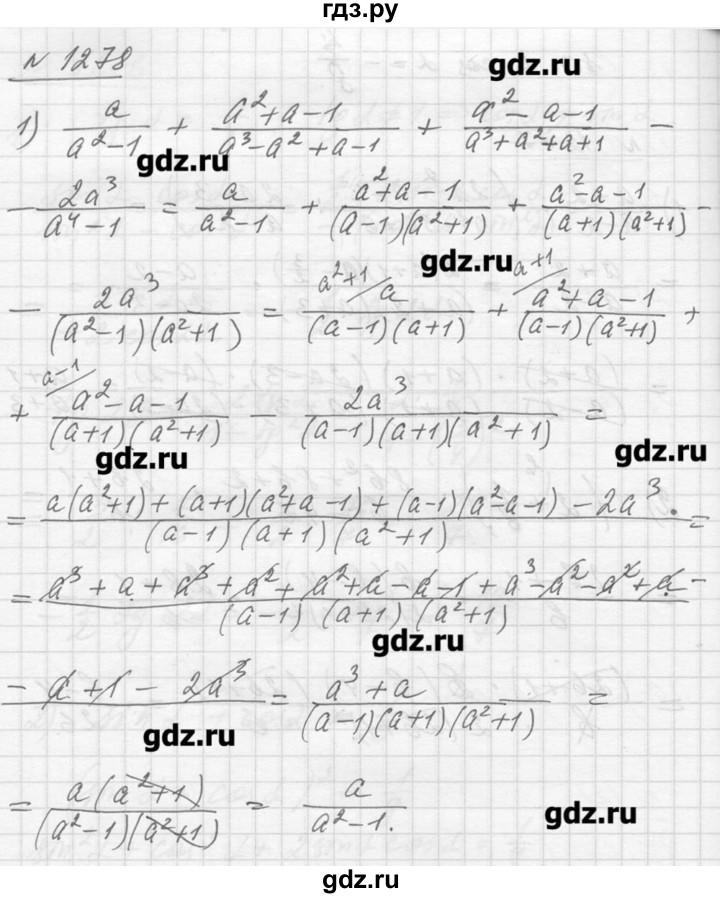 гдз.ру
N 1278
gdz.ru
1) a/(a²-1) + (a²+a-1)/(a³-a²+a-1) + (a²-a-1)/(a³+a²+a+1) -
gdz.ru
- 2a³/(a⁴-1) = a/(a²-1) + (a²+a-1)/((a-1)(a²+1)) + (a²-a-1)/((a+1)(a²+1)) -
gdz.ru
- 2a³/((a²-1)(a²+1)) = a²+1/ a/((a-1)(a+1)) + a+1/ (a²+a-1)/((a-1)(a²+1)) +
+ a-1/ (a²-a-1)/((a+1)(a²+1)) - 2a³/((a-1)(a+1)(a²+1)) =
gdz.ru
gdz.ru
= (a(a²+1)+(a+1)(a²+a-1)+(a-1)(a²-a-1)-2a³.)/((a-1)(a+1)(a²+1)) =
= (a³+a+a³+a²+a²+a-a-1+a³-a²-a²+a-)/((a-1)(a+1)(a²+1))
gdz.ru
-a+1-2a³ = (a³+a)/((a-1)(a+1)(a²+1)) =
gdz.ru
= a(a²+1)/((a²-1)(a²+1)) = a/(a²-1).
gdz.ru
gdz.ru